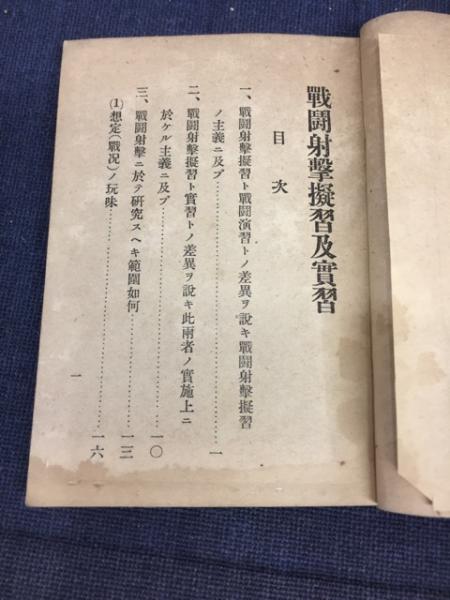 戰鬪射擊擬習及實習
目次
一、戰鬪射擊擬習ト戰鬪演習トノ差異ヲ說キ戰鬪射擊擬習
ノ主義ニ及ブ……………………一
二、戰鬪射擊擬習ト實習トノ差異ヲ說キ此兩者ノ實施上ニ
於ケル主義ニ及ブ……………………一〇
三、戰鬪射擊ニ於テ研究スヘキ範圍如何……………………一三
(1)想定(戰況)ノ玩味……………………一六
一